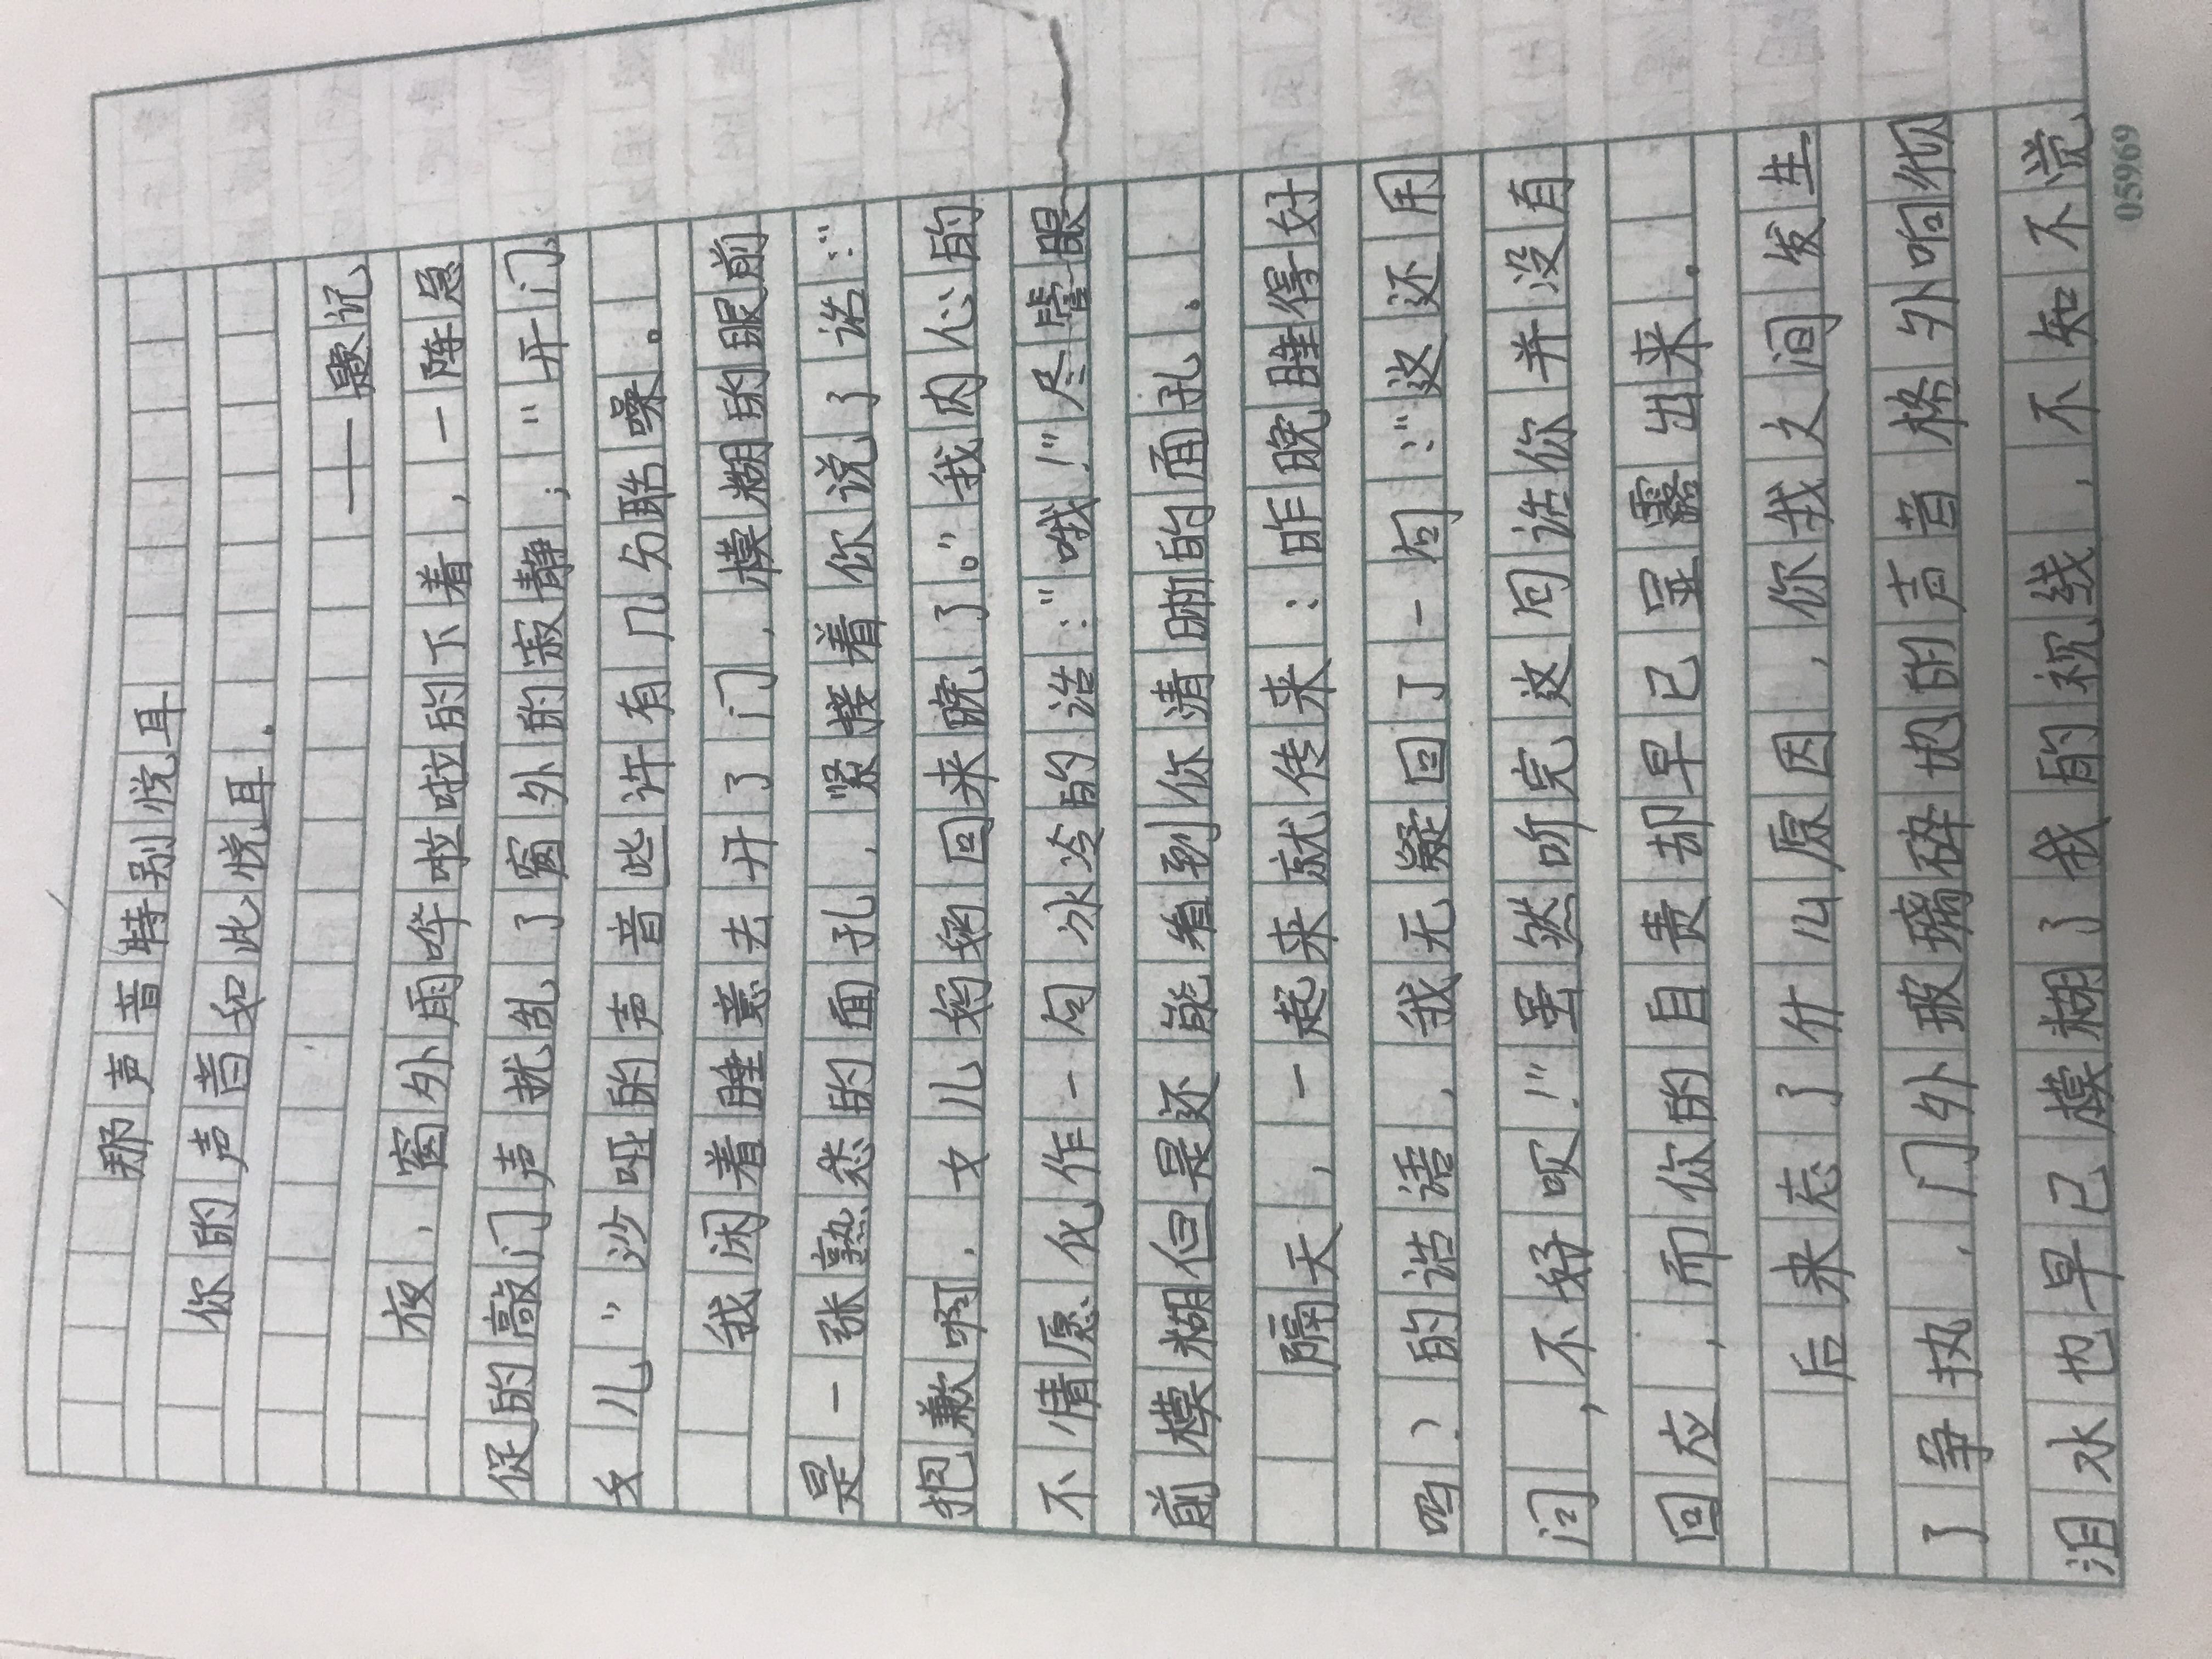 那声音特别悦耳
你的声音如此悦耳.
——题记
夜，窗外雨哗啦啦的下着，一阵急
促的敲门声扰乱了窗外的寂静；"开门
女儿"沙哑的声音些许有几分聒噪。
我闲着睡意去开了门，模糊的眼前
是一张熟悉的面孔，紧接着你说了话:"
抱歉啊，女儿妈妈回来晚了。"我内心的
不情愿化作一句冰冷的话:"哦!"尽管眼
前模糊但是还能看到你清晰的面孔。
隔天，一起来就传来:昨晚睡得好
吗?的话语，我无疑回了一句:"这还用
问，不好呗!"虽然听完这回话你并没有
回应，而你的自责却早已显露出来。
后来忘了什么原因，你我之间发生
了争执，门外玻璃碎地的声音格外响彻
泪水也早已模糊了我的视线，不知不觉
05969